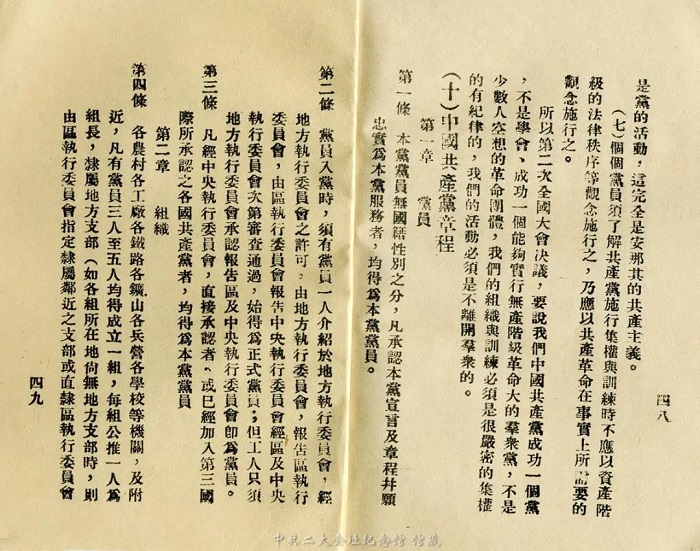 是黨的活動，這完全是安那其的共產主義。
（七）個個黨員須了解共產黨施行集權與訓練時不應以資產階
級的法律秩序等觀念施行之，乃應以共產革命在事實上所需要的
觀念施行之。
所以第二次全國大會決議，要說我們中國共產黨成功一個黨
，不是學會、成功一個能夠實行無產階級革命大的羣衆黨，不是
少數人空想的革命團體，我們的組織與訓練必須是很嚴密的集權
的有紀律的，我們的活動必須是不離開羣衆的。
（十）中國共產黨章程
第一章　黨員
第一條　本黨黨員無國籍性別之分，凡承認本黨宣言及章程幷願
忠實爲本黨服務者，均得爲本黨黨員。
四八
第二條　黨員入黨時，須有黨員一人介紹於地方執行委員會，經
地方執行委員會之許可，由地方執行委員會，報告區執行
委員會，由區執行委員會報告中央執行委員會經區及中央
執行委員會次第審查通過，始得爲正式黨員；但工人只須
地方執行委員會承認報告區及中央執行委員會卽爲黨員。
第三條　凡經中央執行委員會，直接承認者、或已經加入第三國
際所承認之各國共產黨者，均得爲本黨黨員
第二章　組織
第四條　各農村各工廠各鐵路各鑛山各兵營各學校等機關，及附
近，凡有黨員三人至五人均得成立一組，每組公推一人爲
組長，隸屬地方支部（如各組所在地尙無地方支部時，則
由區執行委員會指定隸屬鄰近之支部或直隸區執行委員會
四九
中共二大会址纪念馆 馆藏